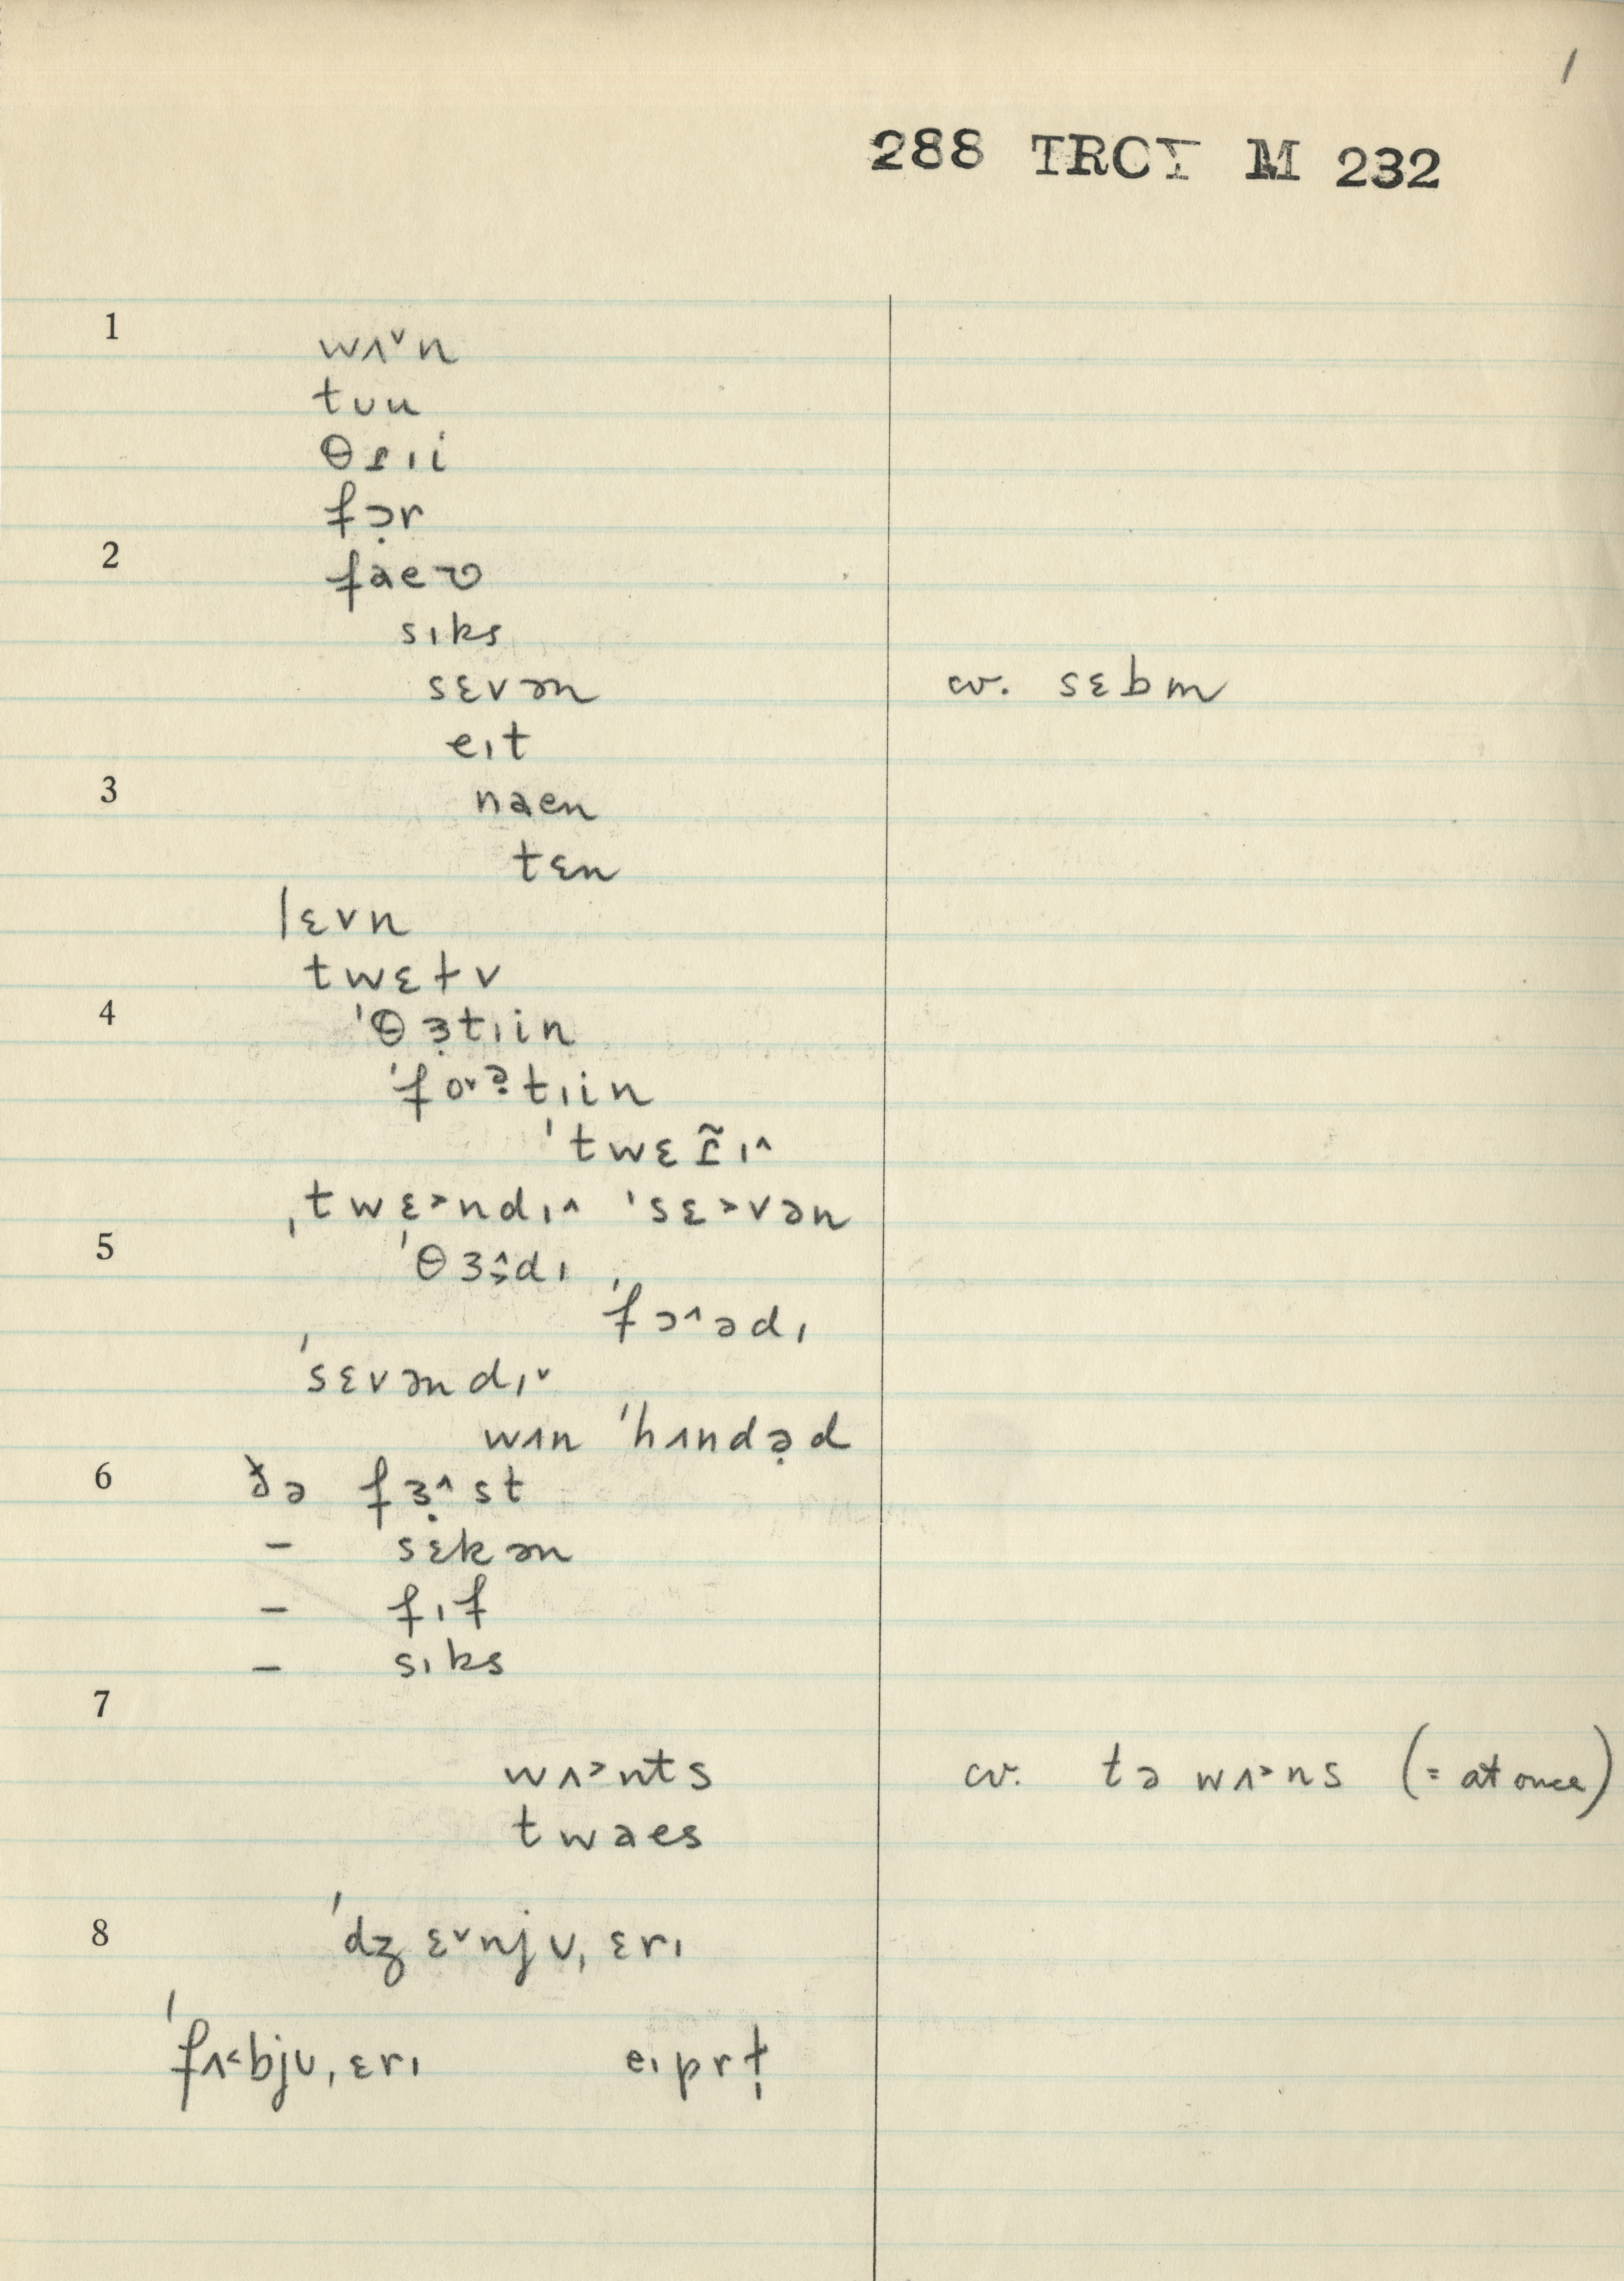 1
288 TRCY M 232
1
wʌ˅n
tʊu
θɾɪi
fɔ̣r
2
faev
sɪks
sɛvən cv. sɛbm
eɪt
3
naen
tɛn
lɛvn
twɛɫv
4
ˈθɜ̣tɪin
ˈfo˅ə̣tɪin
ˈtwɛɾ̃ɪ˄
ˌtwɛ˃ndɪ˄ ˈsɛ˃vən
5
ˈθɜ̣˄dɪ
ˈfɔ˄ədɪ
ˈsɛvəndɪ˅
wʌn ˈhʌndə̣d
6
ðə fɜ̣˄st
– sɛkən
– fɪf
– sɪks
7
wʌ˃nts cv. tə wʌ˃ns (= at once)
twaes
8
ˈdʒɛ˅njʊˌɛrɪ
ˈfʌ˂bjʊˌɛrɪ eɪprɫ̩